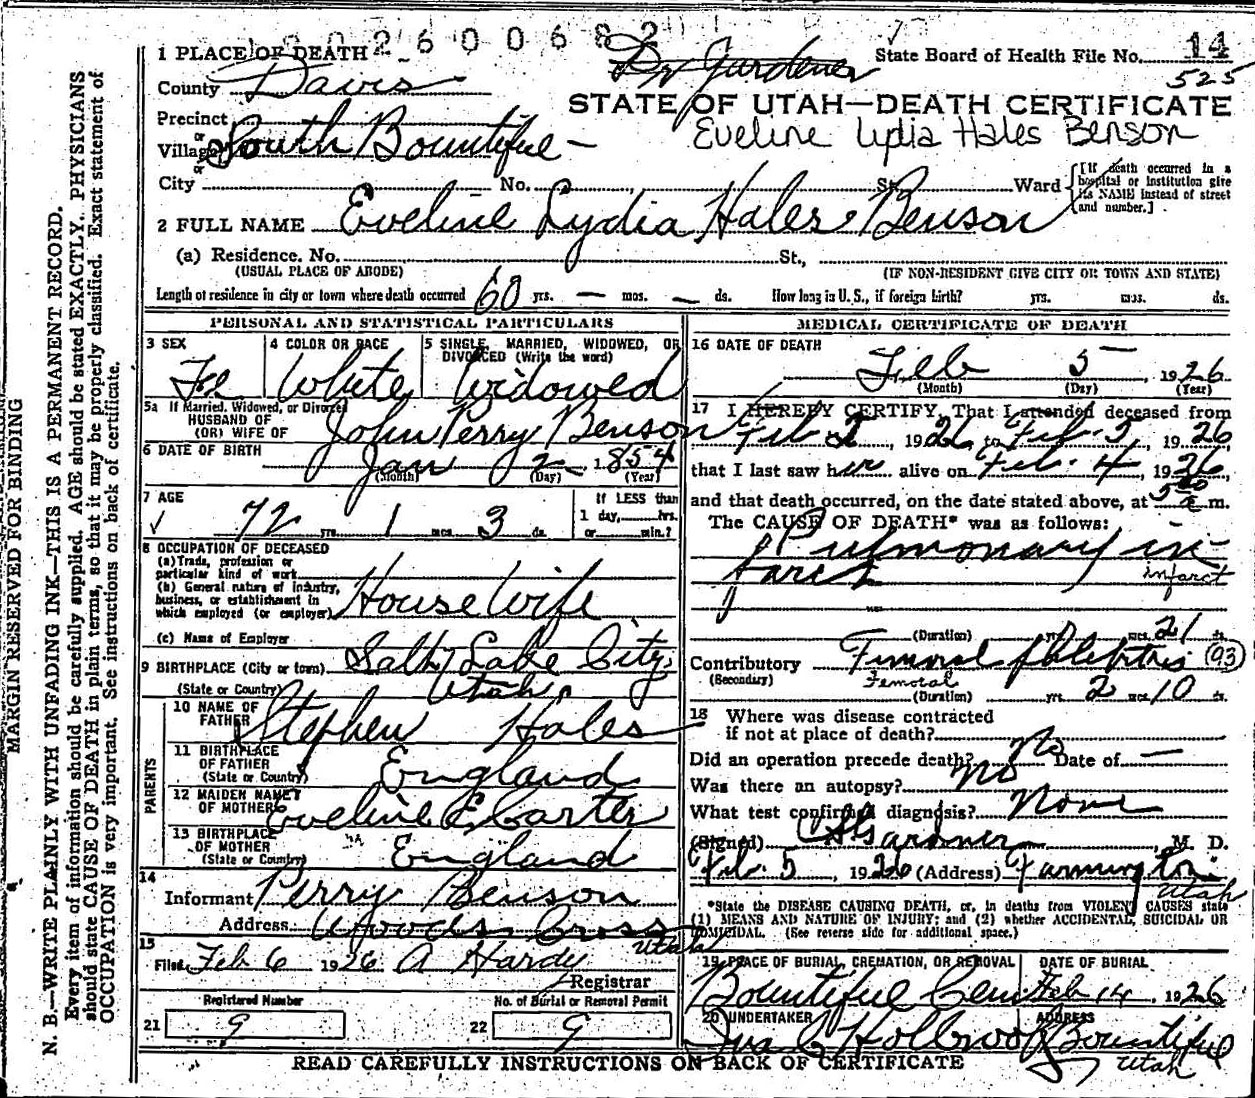 1 PLACE OF DEATH
2 0 2 6 0 0 6 8 2
Dr Gardener
State Board of Health File No. 14
525
County Davis
STATE OF UTAH—DEATH CERTIFICATE
Eveline Lydia Hales Benson
Precinct
or
Village South Bountiful —
or
City No. St. Ward
[If death occurred in a hospital or institution give its NAME instead of street and number.]
2 FULL NAME Eveline Lydia Hales Benson
(a) Residence. No. St.,
(USUAL PLACE OF ABODE) (IF NON-RESIDENT GIVE CITY OR TOWN AND STATE)
Length of residence in city or town where death occurred 60 yrs. — mos. — ds. How long in U. S., if foreign birth? yrs. mos. ds.
PERSONAL AND STATISTICAL PARTICULARS
3 SEX Fe
4 COLOR OR RACE White
5 SINGLE, MARRIED, WIDOWED, OR DIVORCED (Write the word) Widowed
5a If Married, Widowed, or Divorced
HUSBAND OF
(OR) WIFE OF John Perry Benson
6 DATE OF BIRTH Jan 2 — 1854
(Month) (Day) (Year)
7 AGE
72 yrs. 1 mos. 3 ds.
If LESS than
1 day, hrs.
or min.?
8 OCCUPATION OF DECEASED
(a) Trade, profession or
particular kind of work
(b) General nature of industry,
business, or establishment in
which employed (or employer) House Wife
(c) Name of Employer
9 BIRTHPLACE (City or town) Salt Lake City
(State or Country) Utah
PARENTS
10 NAME OF FATHER Stephen Hales
11 BIRTHPLACE OF FATHER (State or Country) England
12 MAIDEN NAME OF MOTHER Eveline E Carter
13 BIRTHPLACE OF MOTHER (State or Country) England
14
Informant Perry Benson
Address Woods Cross Utah
15
Filed Feb 6 1926 A Hardy
Registrar
Registered Number No. of Burial or Removal Permit
21 9 22 9
MEDICAL CERTIFICATE OF DEATH
16 DATE OF DEATH
Feb 5 , 1926
(Month) (Day) (Year)
17 I HEREBY CERTIFY, That I attended deceased from
Feb 2, 1926 to Feb 5, 1926
that I last saw her alive on Feb. 4, 1926,
and that death occurred, on the date stated above, at 5 a m.
The CAUSE OF DEATH* was as follows:
Pulmonary in-
farct
infarct
(Duration) yrs. mos. 21 ds.
Contributory Femoral phlebitis 93
(Secondary) Femoral
(Duration) yrs. 2 mos. 10 ds.
18 Where was disease contracted
if not at place of death?
Did an operation precede death? No Date of —
Was there an autopsy? No
What test confirmed diagnosis? None
(Signed) Gardner, M. D.
Feb. 5, 1926 (Address) Farmington Utah
*State the DISEASE CAUSING DEATH, or, in deaths from VIOLENT CAUSES state
(1) MEANS AND NATURE OF INJURY; and (2) whether ACCIDENTAL, SUICIDAL OR
HOMICIDAL. (See reverse side for additional space.)
19 PLACE OF BURIAL, CREMATION, OR REMOVAL DATE OF BURIAL
Bountiful Cem Feb 14, 1926
20 UNDERTAKER ADDRESS
Holbrook Bountiful
Utah
READ CAREFULLY INSTRUCTIONS ON BACK OF CERTIFICATE
MARGIN RESERVED FOR BINDING
N. B.—WRITE PLAINLY WITH UNFADING INK—THIS IS A PERMANENT RECORD.
Every item of information should be carefully supplied. AGE should be stated EXACTLY. PHYSICIANS
should state CAUSE OF DEATH in plain terms, so that it may be properly classified. Exact statement of
OCCUPATION is very important. See instructions on back of certificate.